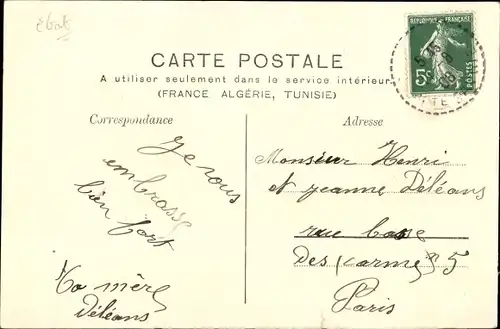 CARTE POSTALE
A utiliser seulement dans le service intérieur
(FRANCE, ALGÉRIE, TUNISIE)
REPUBLIQUE FRANÇAISE
5c
POSTES
Correspondance
Adresse
Je vous
embrasse
bien fort
Ta mère
Déléans
Monsieur Henri
et jeanne Déléans
rue basse
Des Carmes 5
Paris